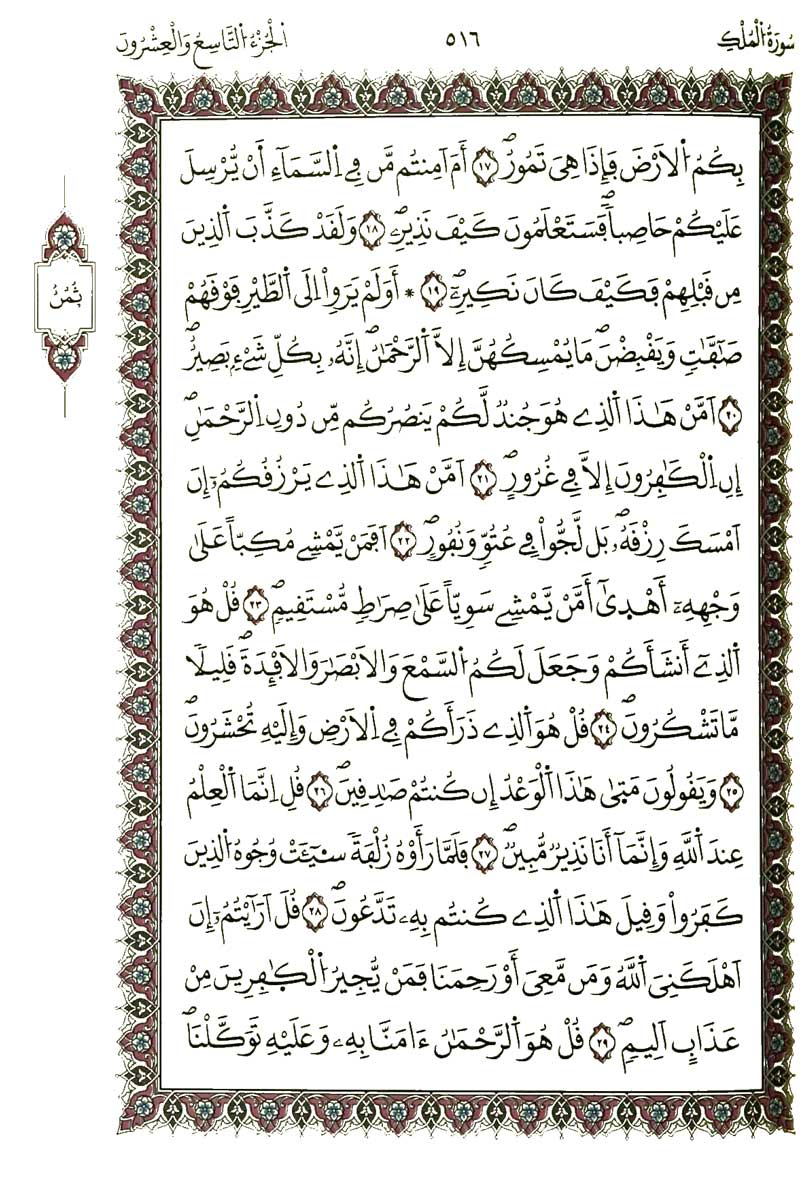 سُورَةُ الْمُلْكِ
٥١٦
اَلْجُزْءُ التَّاسِعُ وَالْعِشْرُونَ
بِكُمُ اُلَارْضَ فَإِذَا هِىَ تَمُورُۖ ١٧ أَمَ اَمِنتُم مَّن فِے اِلسَّمَآءِ اَنْ يُّرْسِلَ
عَلَيْكُمْ حَاصِباٗۖ فَسَتَعْلَمُونَ كَيْفَ نَذِيرِۖۦ ١٨ وَلَقَدْ كَذَّبَ اَلذِينَ
مِن قَبْلِهِمْ فَكَيْفَ كَانَ نَكِيرِۖۦٓ ١٩ * أَوَلَمْ يَرَوِاْ اِلَى اَلطَّيْرِ فَوْقَهُمْ
صَٰٓفَّٰتٖ وَيَقْبِضْنَۖ مَا يُمْسِكُهُنَّ إِلَّا اَلرَّحْمَٰنُۖ إِنَّهُۥ بِكُلِّ شَےْءِۢ بَصِيرٌۖ
٢٠ اَمَّنْ هَٰذَا اَلذِے هُوَ جُندٞ لَّكُمْ يَنصُرُكُم مِّن دُونِ اِلرَّحْمَٰنِۖ
إِنِ اِلْكَٰفِرُونَ إِلَّا فِے غُرُورٍۖ ٢١ اَمَّنْ هَٰذَا اَلذِے يَرْزُقُكُمُۥٓ إِنَ
اَمْسَكَ رِزْقَهُۥۖ بَل لَّجُّواْ فِے عُتُوّٖ وَنُفُورٍۖ ٢٢ اَفَمَنْ يَّمْشِے مُكِبّاً عَلَىٰ
وَجْهِهِۦٓ أَهْدٜىٰٓ أَمَّنْ يَّمْشِے سَوِيّاً عَلَىٰ صِرَٰطٖ مُّسْتَقِيمٖۖ ٢٣ قُلْ هُوَ
اَلذِےٓ أَنشَأَكُمْ وَجَعَلَ لَكُمُ اُلسَّمْعَ وَالَابْصَٰرَ وَالَافْـِٕدَةَۖ قَلِيلاٗ
مَّا تَشْكُرُونَۖ ٢٤ قُلْ هُوَ اَلذِے ذَرَأَكُمْ فِے اِلَارْضِ وَإِلَيْهِ تُحْشَرُونَۖ
٢٥ وَيَقُولُونَ مَتٜىٰ هَٰذَا اَلْوَعْدُ إِن كُنتُمْ صَٰدِقِينَۖ ٢٦ قُلِ اِنَّمَا اَلْعِلْمُ
عِندَ اَللَّهِ وَإِنَّمَآ أَنَا نَذِيرٞ مُّبِينٞۖ ٢٧ فَلَمَّا رَأَوْهُ زُلْفَةٗ سِيٓـَٔتْ وُجُوهُ اُلذِينَ
كَفَرُواْ وَقِيلَ هَٰذَا اَلذِے كُنتُم بِهِۦ تَدَّعُونَۖ ٢٨ قُلَ اَرَٰٓيْتُمُۥٓ إِنَ
اَهْلَكَنِىَ اَللَّهُ وَمَن مَّعِىَ أَوْ رَحِمَنَا فَمَنْ يُّجِيرُ اُلْكٰٜفِرِينَ مِنْ
عَذَابٍ اَلِيمٖۖ ٢٩ قُلْ هُوَ اَلرَّحْمَٰنُ ءَامَنَّا بِهِۦ وَعَلَيْهِ تَوَكَّلْنَاۖ
ثُمُنُ